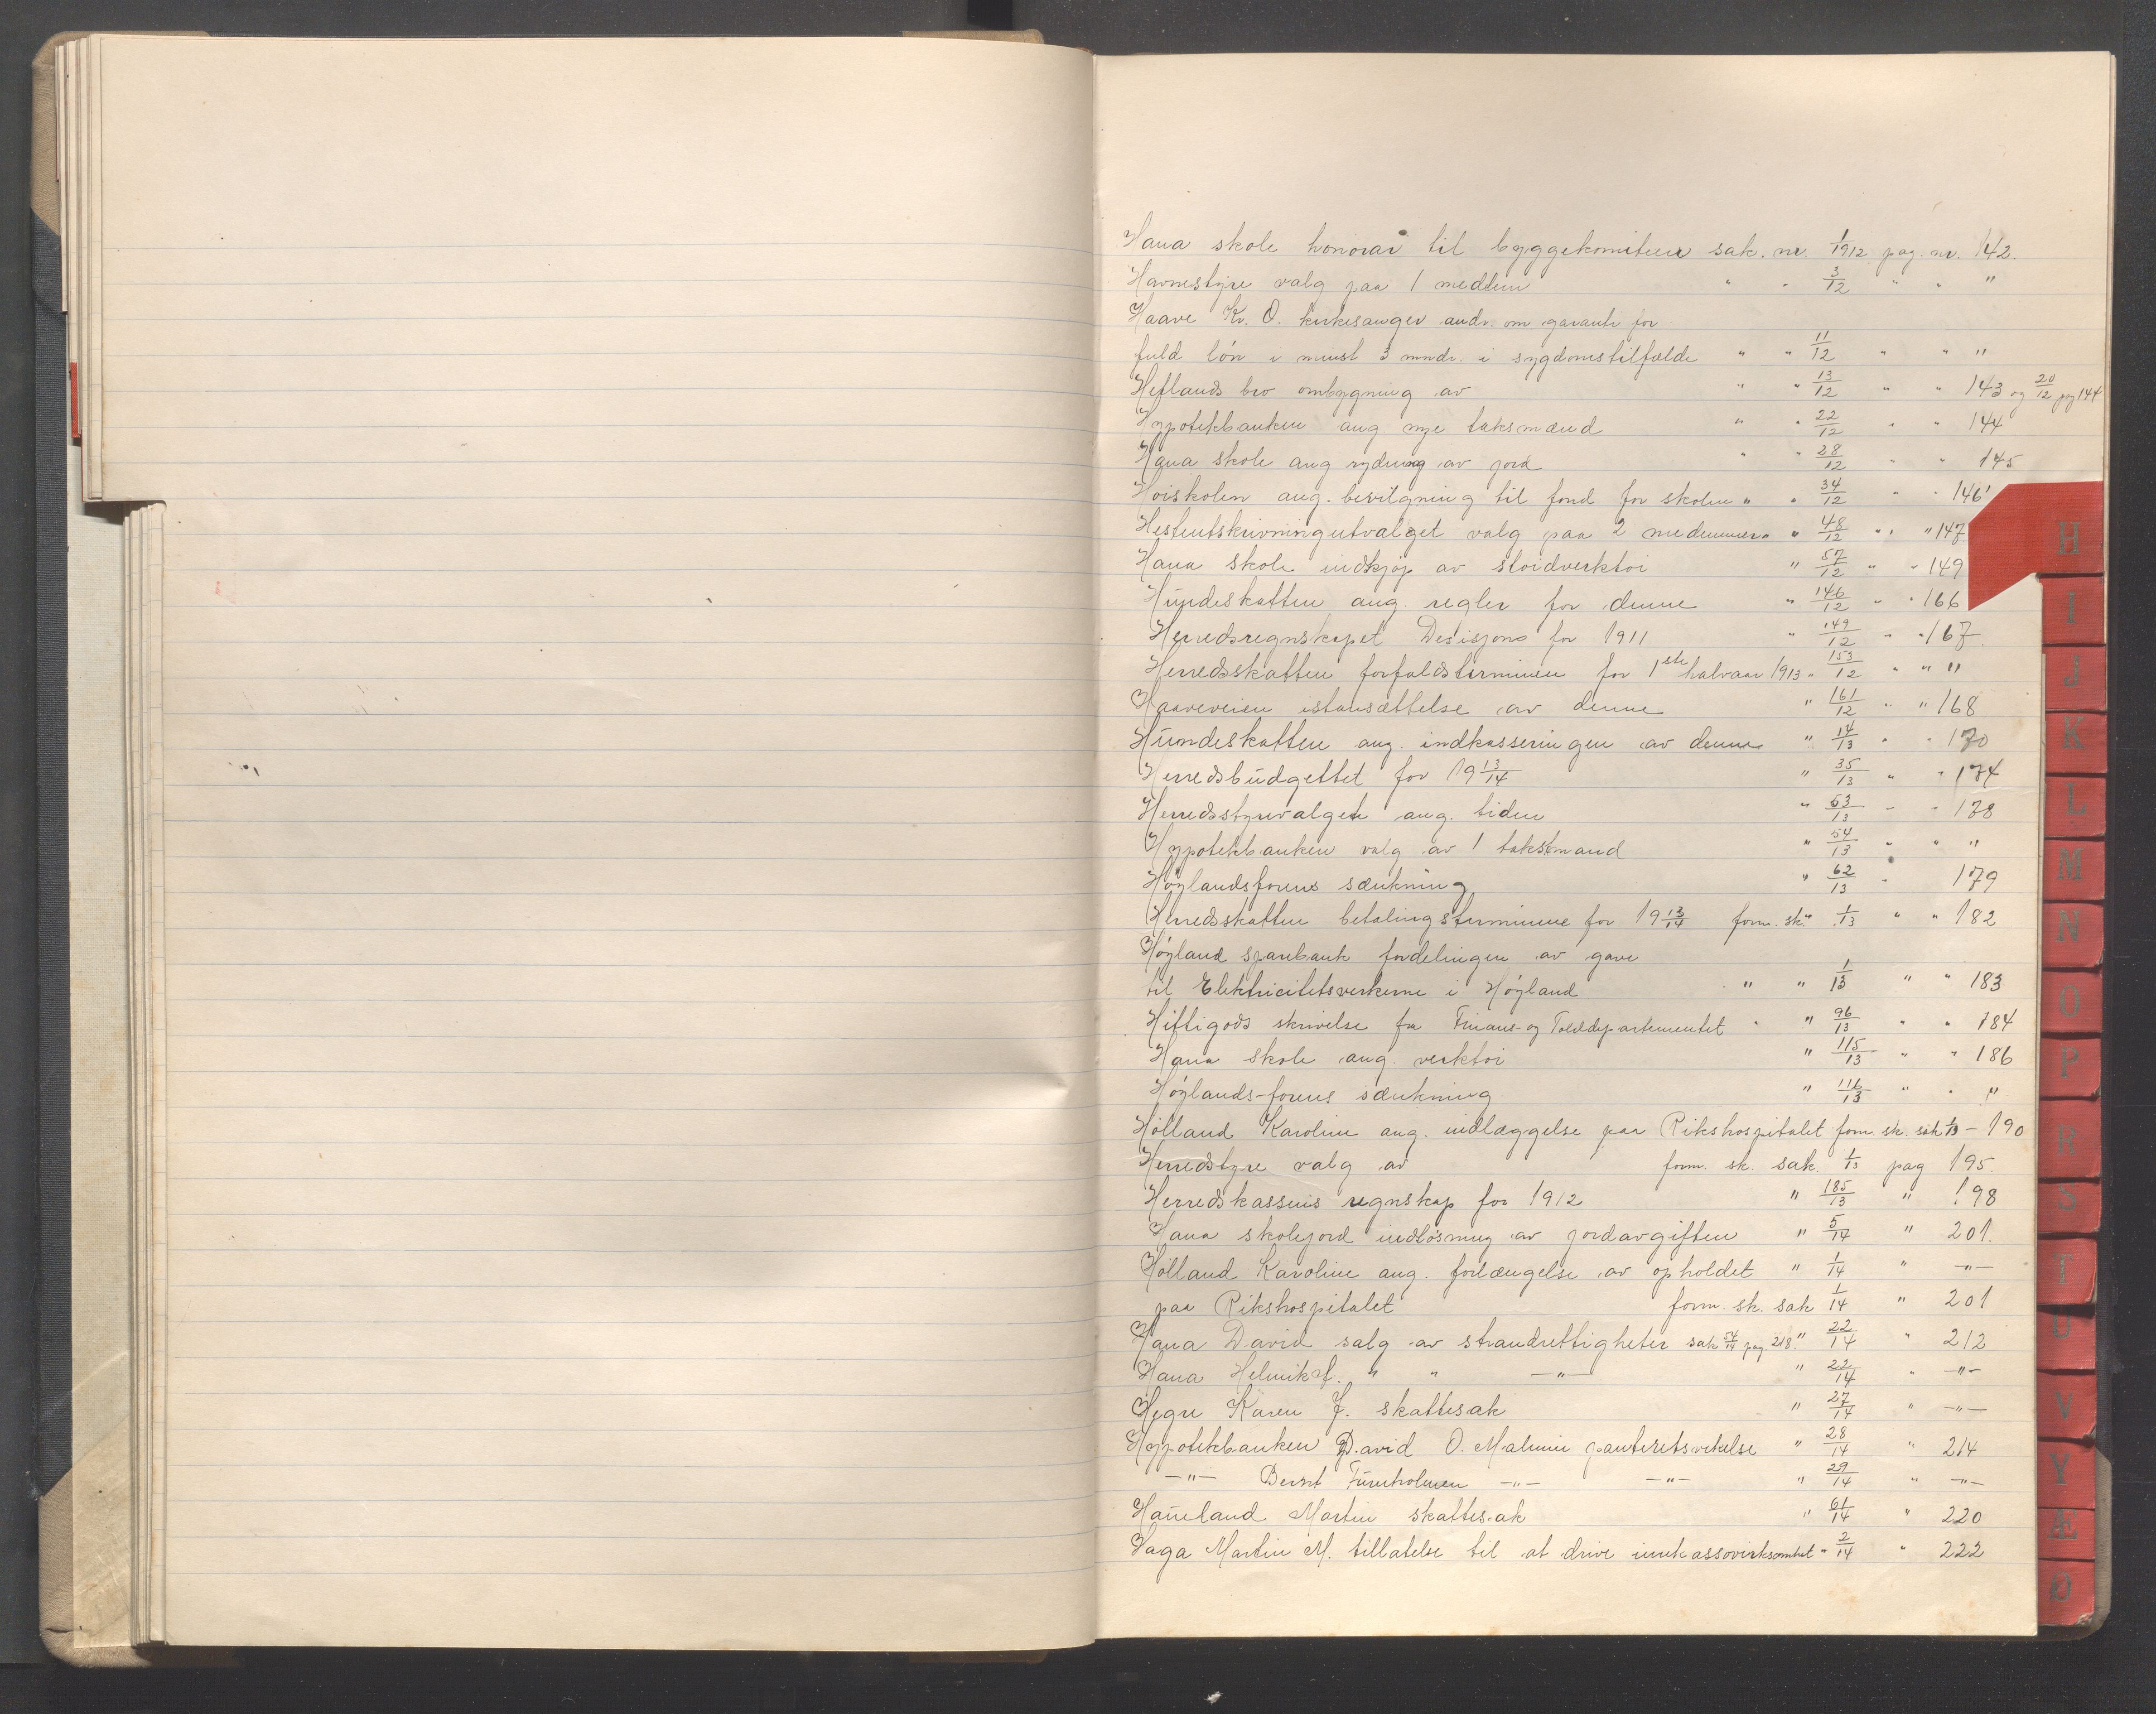 Hana skole honorar til byggekomiteen sak. nr. 1/1912 pag. nr. 142.
Havnestyre valg paa 1 medlem " " 3/12 " " "
Haave Kr. O. kirkesanger andr. om garanti for
fuld løn i minst 3 mndr. i sygdomstilfælde " " 11/12 " " "
Hetlands bro ombygning av " " 13/12 " " 143 og 20/12 pag 144
Hypotekbanken ang nye taksmænd " " 22/12 " " 144
Hana skole ang rydning av jord " " 28/12 " " 145
Høiskolen ang. bevilgning til fond for skolen " " 34/12 " " 146
Hesteutskrivningutvalget valg paa 2 medemmer " " 48/12 " " 147
Hana skole indkjøp av sløidverktøi " 57/12 " " 149
Hundeskatten ang. regler for denne " 146/12 " " 166
Herredsregnskapet Desisjons for 1911 " 149/12 " " 167
Herredsskatten forfaldsterminen for 1ste halvaar 1913 " 153/12 " " "
Haaveveien istansættelse av denne " 161/12 " " 168
Hundeskatten ang. indkasseringen av denne " 14/13 " " 170
Herredsbudgettet for 19 13/14 " 35/13 " " 174
Herredsstyrevalget ang. tiden " 53/13 " " 178
Hypotekbanken valg av 1 takstmand " 54/13 " " "
Høylandsforens sænkning " 62/13 " 179
Herredsskatten betalingsterminene for 19 13/14 form. sk. " 1/13 " " 182
Høyland sparebank fordelingen av gave
til Elektricitetsverkerne i Høyland " " 1/13 " " 183
Hittigods skrivelse fra Finans- og Tolddepartementet " " 96/13 " " 184
Hana skole ang. verktøi " 115/13 " " 186
Høylands-forens sænkning " 116/13 " " "
Hølland Karoline ang. indlæggelse paa Rikshospitalet form. sk. sak 1/13 - 190
Herredstyre valg av form. sk. sak. 1/13 pag 195.
Herredskassens regnskap for 1912 " 185/13 " 198
Hana skolejord indløsning av jordavgiften " 5/14 " 201.
Hølland Karoline ang. forlængelse av opholdet " 1/14 " —"—
paa Rikshospitalet form. sk. sak 1/14 " 201
Hana David salg av strandrettigheter sak 54/14 pag 218. " 22/14 " 212
Hana Helmik " " —"— " 22/14 " —"—
Hegre Karen J. skattesak " 27/14 " —"—
Hypotekbanken David O. Malmin panteretsvikelse " 28/14 " 214
—"— Bernt Furenholmen —"— —"— " 29/14 " —"—
Haueland Martin skattesak " 61/14 " 220
Haga Martin M. tillatelse til at drive innkassovirksomhet " 2/14 " 222
H
I
J
K
L
M
N
O
P
R
S
T
U
V
Y
Æ
Ø